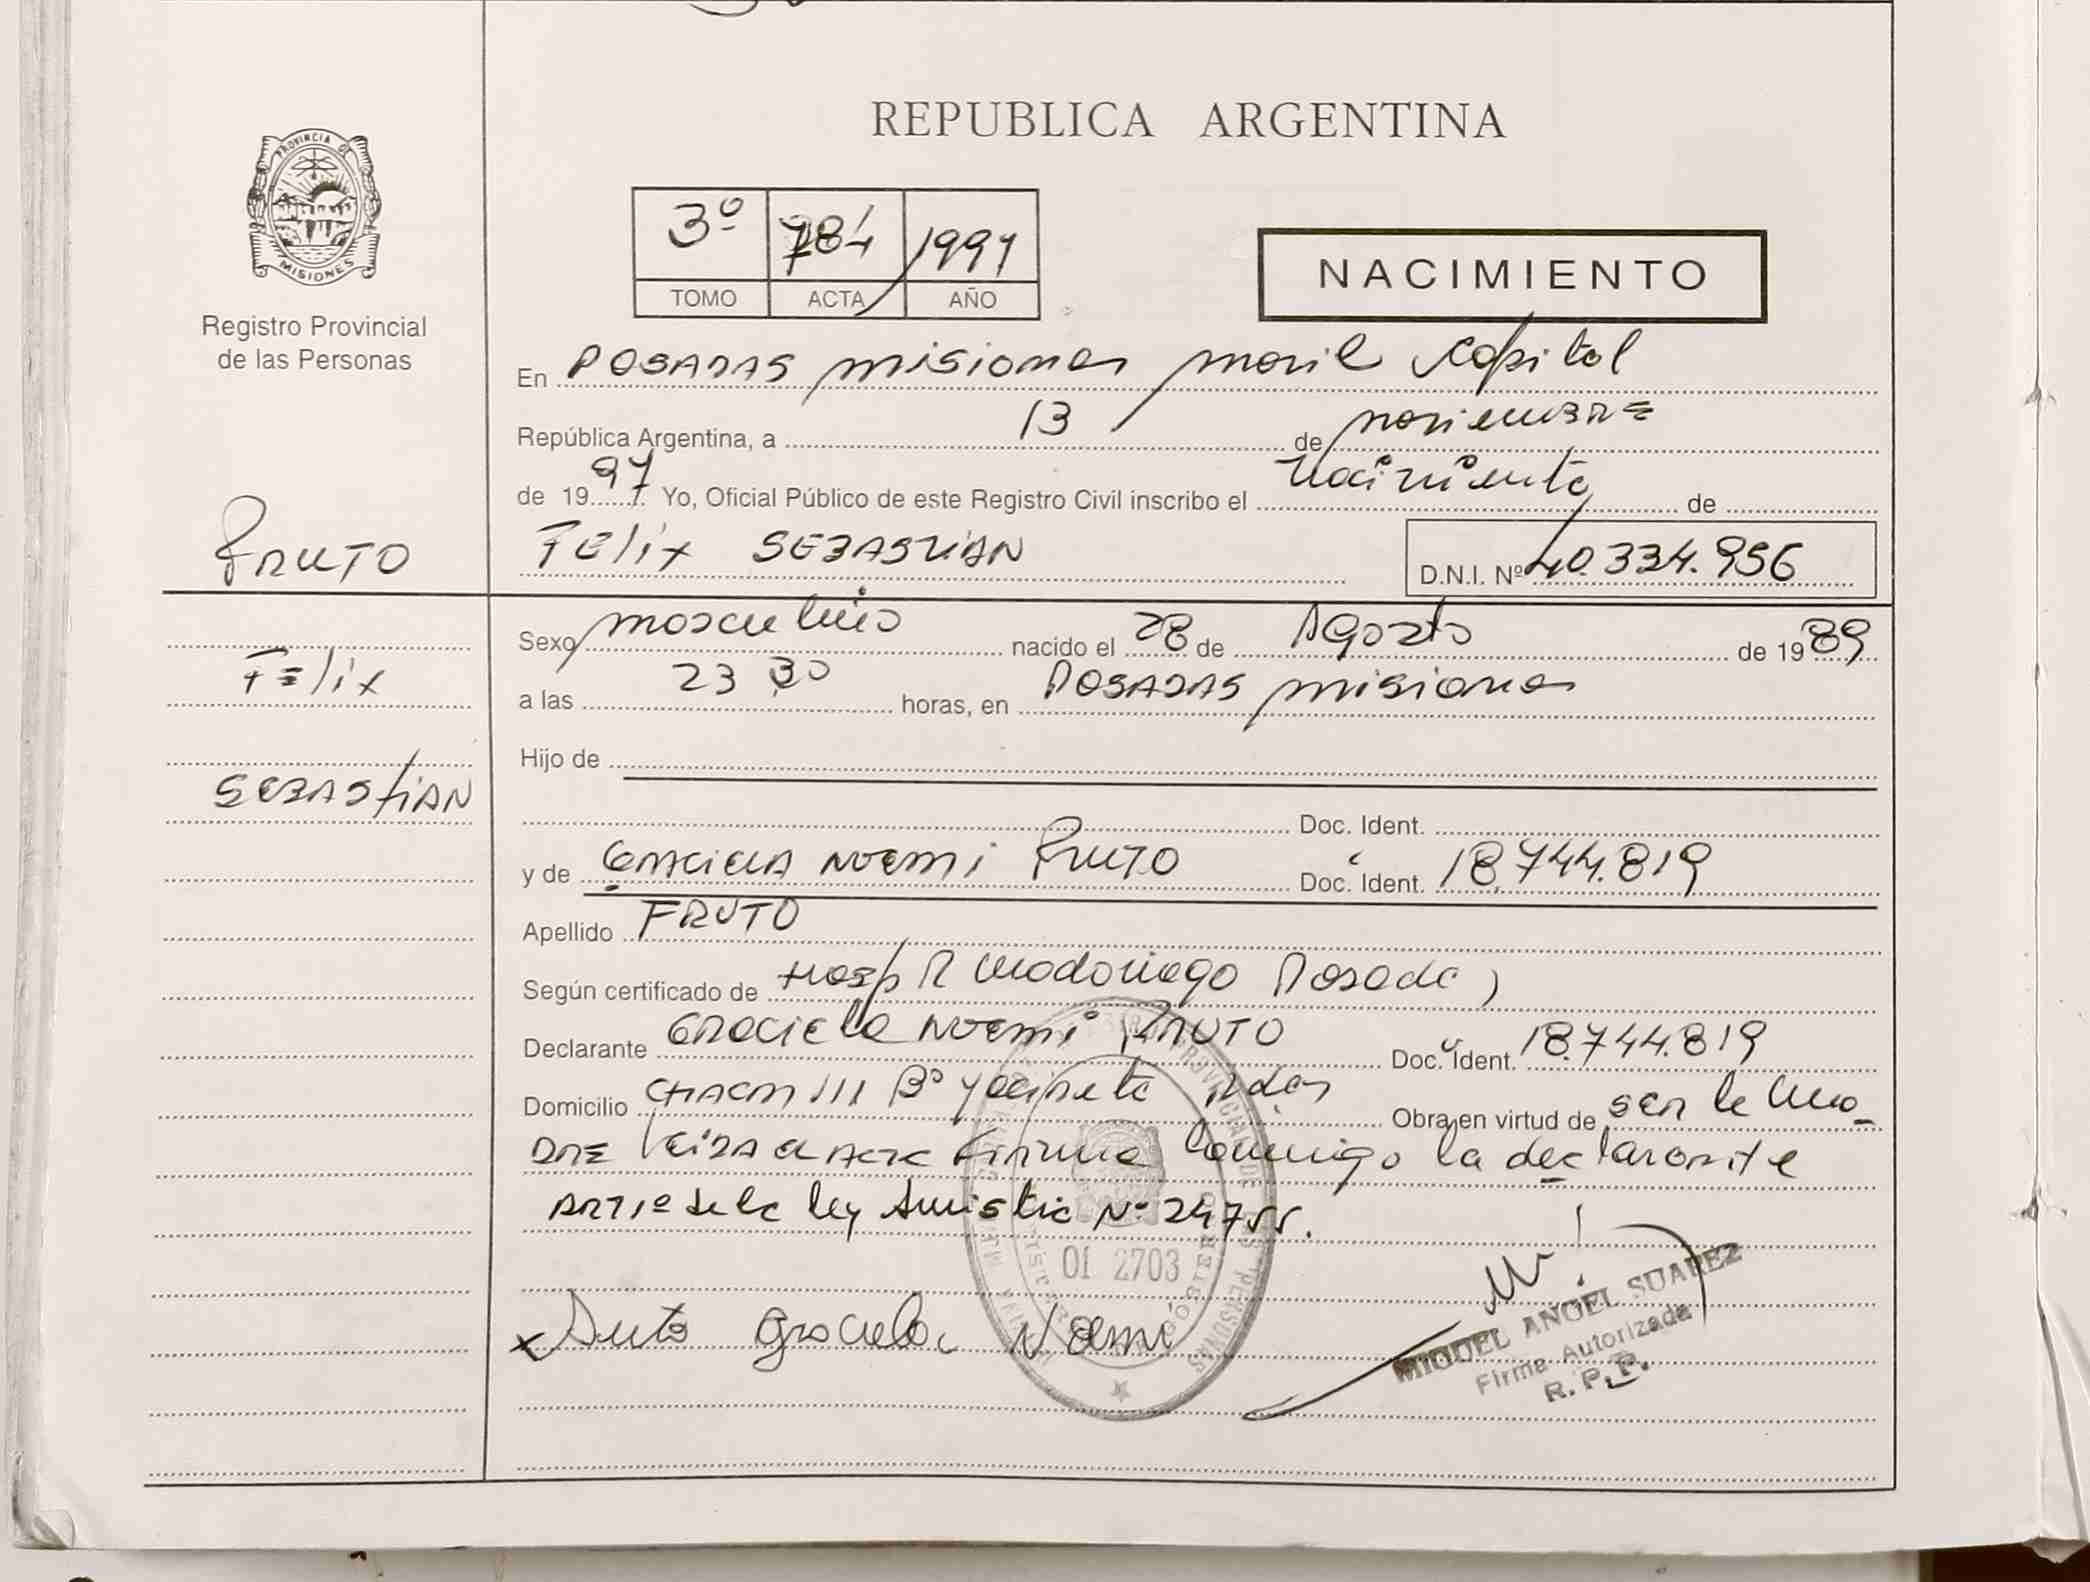 REPUBLICA ARGENTINA
PROVINCIA DE
MISIONES
Registro Provincial
de las Personas
3º 784 1997
TOMO ACTA AÑO
NACIMIENTO
En POSADAS misiones movil capital
República Argentina, a 13 de noviembre
de 1997 Yo, Oficial Público de este Registro Civil inscribo el nacimiento de
FRUTO
FELIX SEBASTIAN
D.N.I. Nº 40.334.956
Sexo masculino nacido el 28 de Agosto de 1989
Felix
a las 23 30 horas, en POSADAS misiones
Hijo de
SEBASTIAN
Doc. Ident.
y de GRACIELA NOEMI FRUTO Doc. Ident. 18.744.819
Apellido FRUTO
Según certificado de Hosp R Madariaga Posadas
Declarante GRACIELA NOEMI FRUTO Doc. Ident. 18.744.819
Domicilio CHACRA 111 Bº Yacireta Pdas Obra en virtud de ser la ma-
DRE Leida el acta firma conmigo la declarante
ART 1º de la ley Amistia Nº 24755.
01 2703
x Fruto Graciela Noemi
MIGUEL ANGEL SUAREZ
Firma Autorizada
R.P.P.